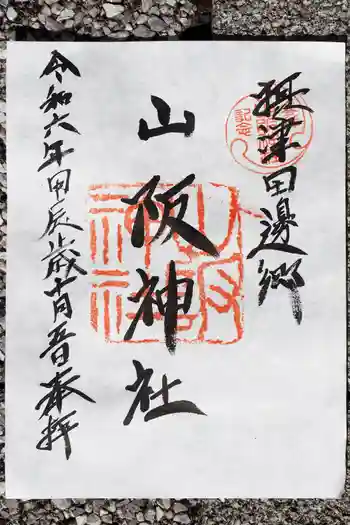 摂津田邊郷
山阪神社
令和六年甲辰歳十月五日奉拝
山阪
神社